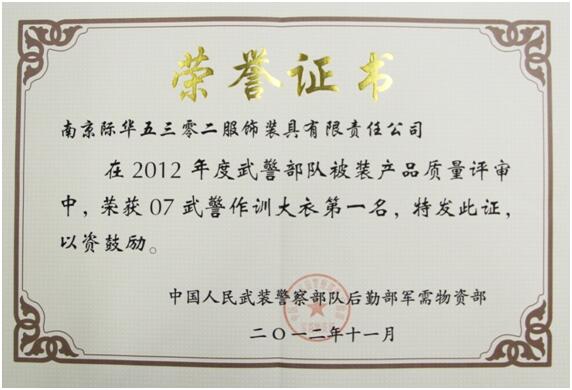 荣誉证书
南京际华五三零二服饰装具有限责任公司
在2012年度武警部队被装产品质量评审
中，荣获07武警作训大衣第一名，特发此证，
以资鼓励。
中国人民武装警察部队后勤部军需物资部
二〇一二年十一月